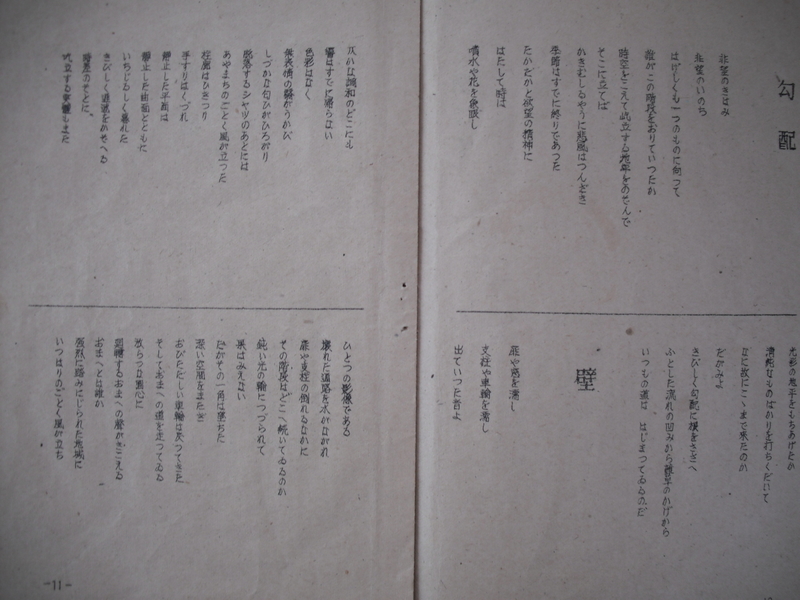 勾配
非望のきはみ
非望のいのち
はげしくも一つのものに向つて
誰がこの階段をおりていつたか
時空をこえて屹立する地平をのぞんで
そこに立てば
かきむしるやうに悲風はつんざき
季節はすでに終りであつた
たかだかと欲望の精神に
はたして時は
噴水や花を象眼し
光彩の地平をもちあげたか
清純なものばかりを打ちくだいて
なに故にこゝまで来たのか
だがみよ
きびしく勾配に根をさゝへ
ふとした流れの凹みから雑草のかげから
いつもの道は、はじまつてゐるのだ
壁
扉や窓を濡し
支柱や車輪を濡し
出ていつた音よ
調和のどこにも
響はすでに帰らない
色彩はなく
無表情の翳がうかび
しづかな匂ひがひろがり
脱落するシヤツのあとには
あやまちのごとく風が立つた
柱廊はひきつり
手すりはくづれ
静止した平面は
静止した曲面とともに
いちじるしく暮れた
きびしく退潮をさゝへる
暗景のそとに、
屹立する もまた
ひとつの影像である
壊れた通路を水がながれ
扉や支柱の倒れるなかに
その階段はどこへ続いてゐるのか
鈍い光の輪につづられて
果はみえない
だがその一角は落ちた
深い空間をまたぎ
おびただしい車輪は戻つてきた
そしておまへの道を走つてゐる
放らつな重心に
回轉するおまへの聲がきこえる
おまへとは誰か
強烈に踏みにじられた地域に
いつはりのごとく風が立ち
-11-